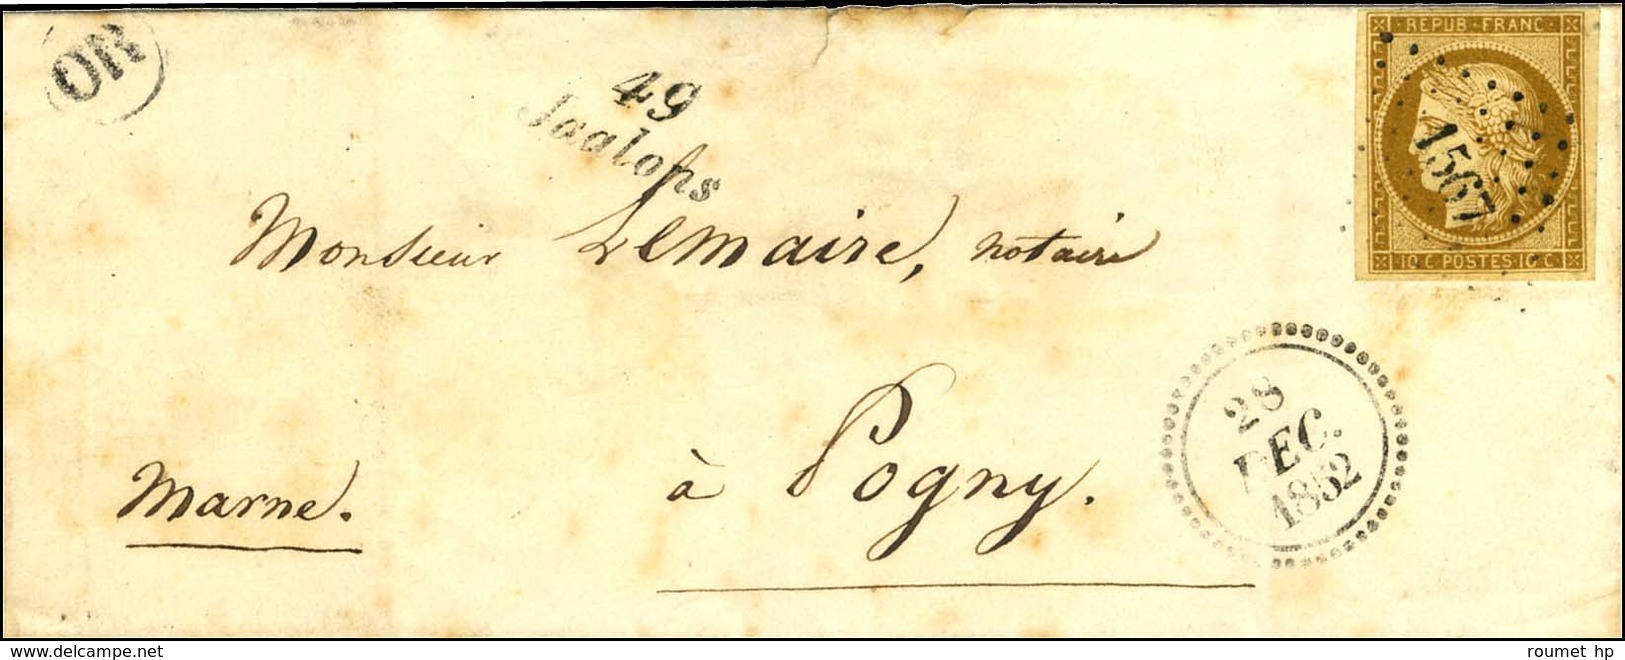 OR
49
Jaalons
REPUB. FRANC.
1567
10 C. POSTES 10 C.
Monsieur Lemaire, notaire
à Pogny.
Marne.
28
DEC.
1852
delcampe.net
roumet hp